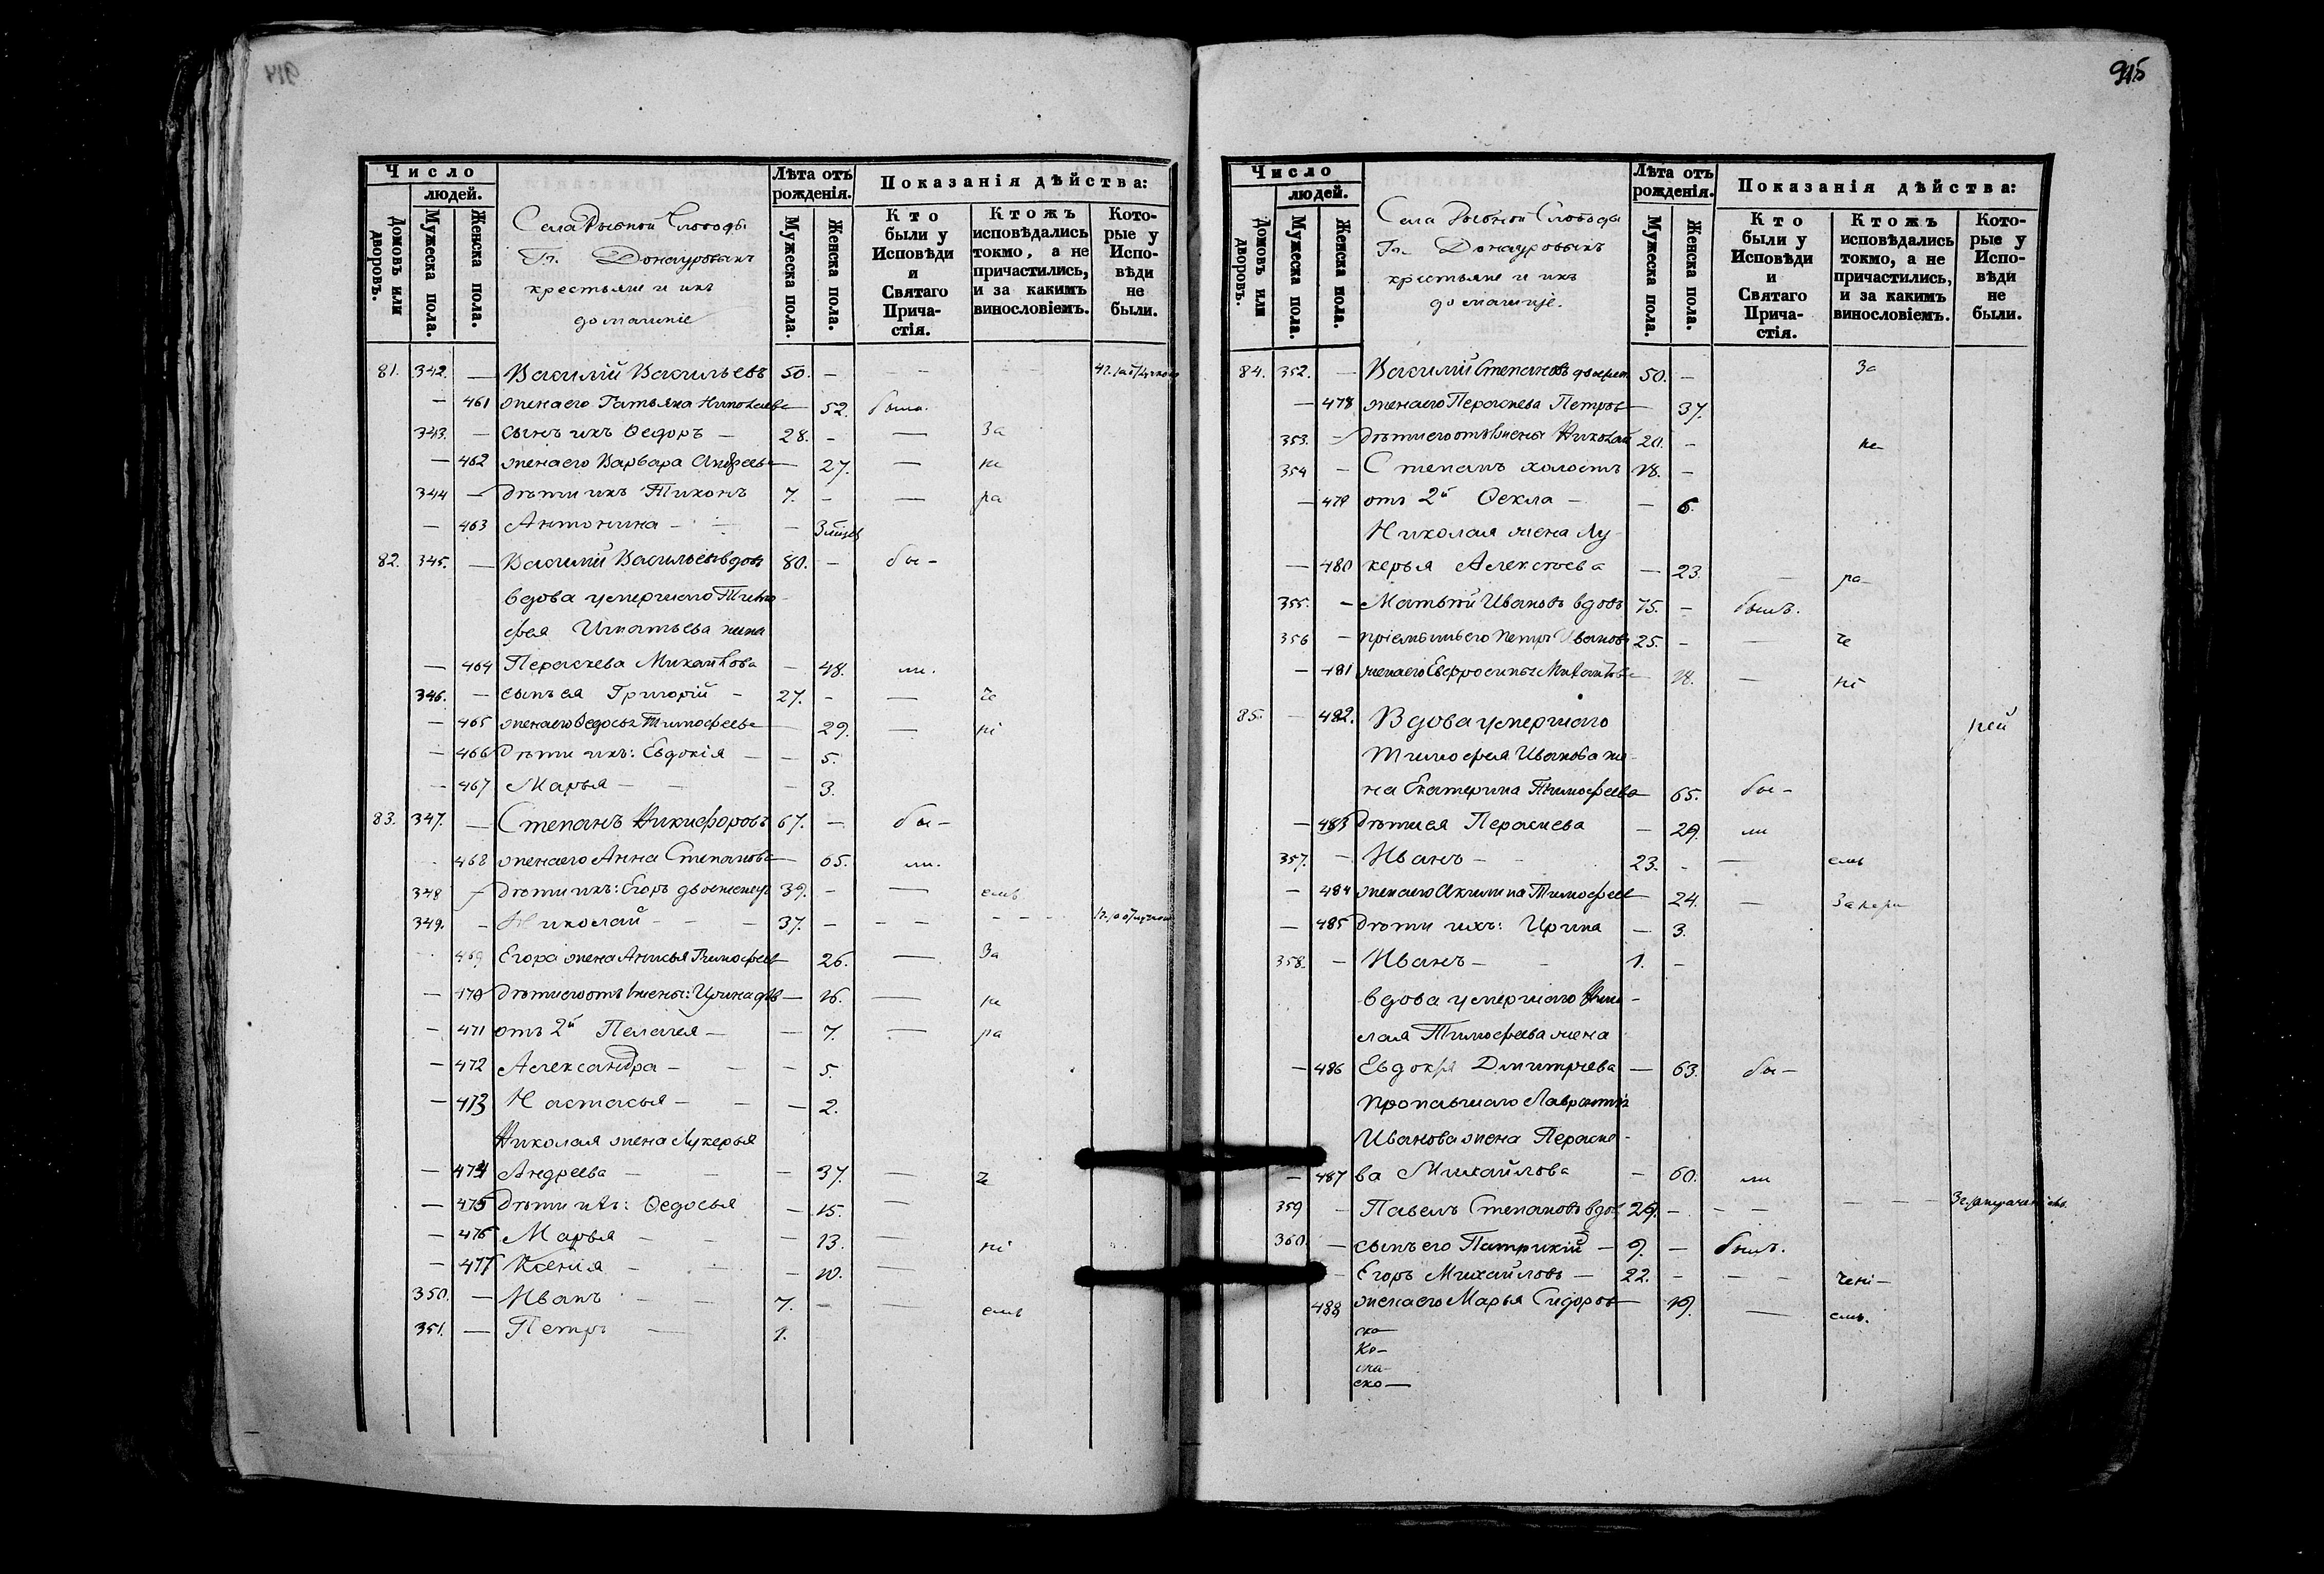 914
Число
людей.
Домовъ или дворовъ.
Мужеска пола.
Женска пола.
Села Рыбной Слободы
Гг. Донауровыхъ
крестьяне и ихъ
домашніе
Лѣта отъ рожденія.
Мужеска пола.
Женска пола.
Показанія дѣйства:
Кто были у Исповѣди и Святаго Прича-стія.
Ктожъ исповѣдались токмо, а не причастились, и за какимъ винословіемъ.
Кото-рые у Испо-вѣди не были.
81. 342. — Василій Васильевъ 50. —
— 461 жена его Татьяна Николаева — 52. была.
343. — сынъ ихъ Ѳедоръ — 28. — — За
— 462 жена его Варвара Андреева — 27. — не
344 — дѣти ихъ Тихонъ 7. — — ра
— 463 Антонина — — 3
82. 345. — Василій Васильевъ вдовъ 80. — бы-
вдова умершаго Тимо-
фея Игнатьева жена
— 464 Пераскева Михайлова — 48. ли.
346. — сынъ ея Григорій — 27. — — че
— 465 жена его Ѳедосья Тимофеева — 29. — ні
— 466 дѣти ихъ: Евдокія — — 5.
— 467 Марья — — 3.
83. 347. — Степанъ Никифоровъ 67. — бы-
468 жена его Анна Степанова — 65. ли.
348 — дѣти ихъ: Егоръ двоежен 39. — — емъ
349. — Николай — — 37. — — —
469 Егора жена Анисья Тимофеев — 26. — За
— 470 дѣти его отъ 1 жены: Ирина дѣв — 16. — не
— 471 отъ 2й Пелагея — — 7. — ра
— 472 Александра — — — 5.
— 473 Настасья — — — 2.
Николая жена Лукерья
— 474 Андреева — — — 37. — че
— 475 дѣти ихъ: Ѳедосья — 15. —
— 476 Марья — — — 13. — ні
— 477 Ксенія — — 10. —
350. — Иванъ — — 7. — — емъ
351. — Петръ — 1.
915
Число
людей.
Домовъ или дворовъ.
Мужеска пола.
Женска пола.
Села Рыбной Слободы
Гг. Донауровыхъ
крестьяне и ихъ
домашніе.
Лѣта отъ рожденія.
Мужеска пола.
Женска пола.
Показанія дѣйства:
Кто были у Исповѣди и Святаго Прича-стія.
Ктожъ исповѣдались токмо, а не причастились, и за какимъ винословіемъ.
Кото-рые у Испо-вѣди не были.
84. 352. — Василий Степановъ двоежен 50. — За
— 478 жена его Пераскева Петров — 37.
353. — дѣти его отъ 1 жены Николай 20. — не
354 — Степанъ холостъ 18. —
— 479 отъ 2й Ѳекла — — 6.
Николая жена Лу-
— 480 керья Алексеева — 23. — ра-
355. — Матвей Ивановъ вдовъ 75. — былъ.
356 — пріемышъ его Петръ Ивановъ 25. — — че
— 481 жена его Евфросинья Михайлова 18. — ні
85. — 482. Вдова умершаго
Тимофея Иванова же-
на Екатерина Тимофеева 65. бы-
— 483 дѣти ея Пераскева — 29. ли
357. — Иванъ — 23. — — емъ
— 484 жена его Акилина Тимофеев — 24. — За нера
— 485 дѣти ихъ: Ирина — 3.
358. — Иванъ — — 1. —
вдова умершаго Нико-
лая Тимофеева жена
— 486 Евдокія Дмитріева — 63. бы-
пропавшаго Лаврентія
Иванова жена Пераске-
— 487 ва Михайлова — 60. ли
359 — Павелъ Степановъ вдов 29. — — —
360. — сынъ его Патрикій — 9. — былъ.
— Егоръ Михайловъ — 22. — — — чені-
488 жена его Марья Сидоров — 19. — емъ.